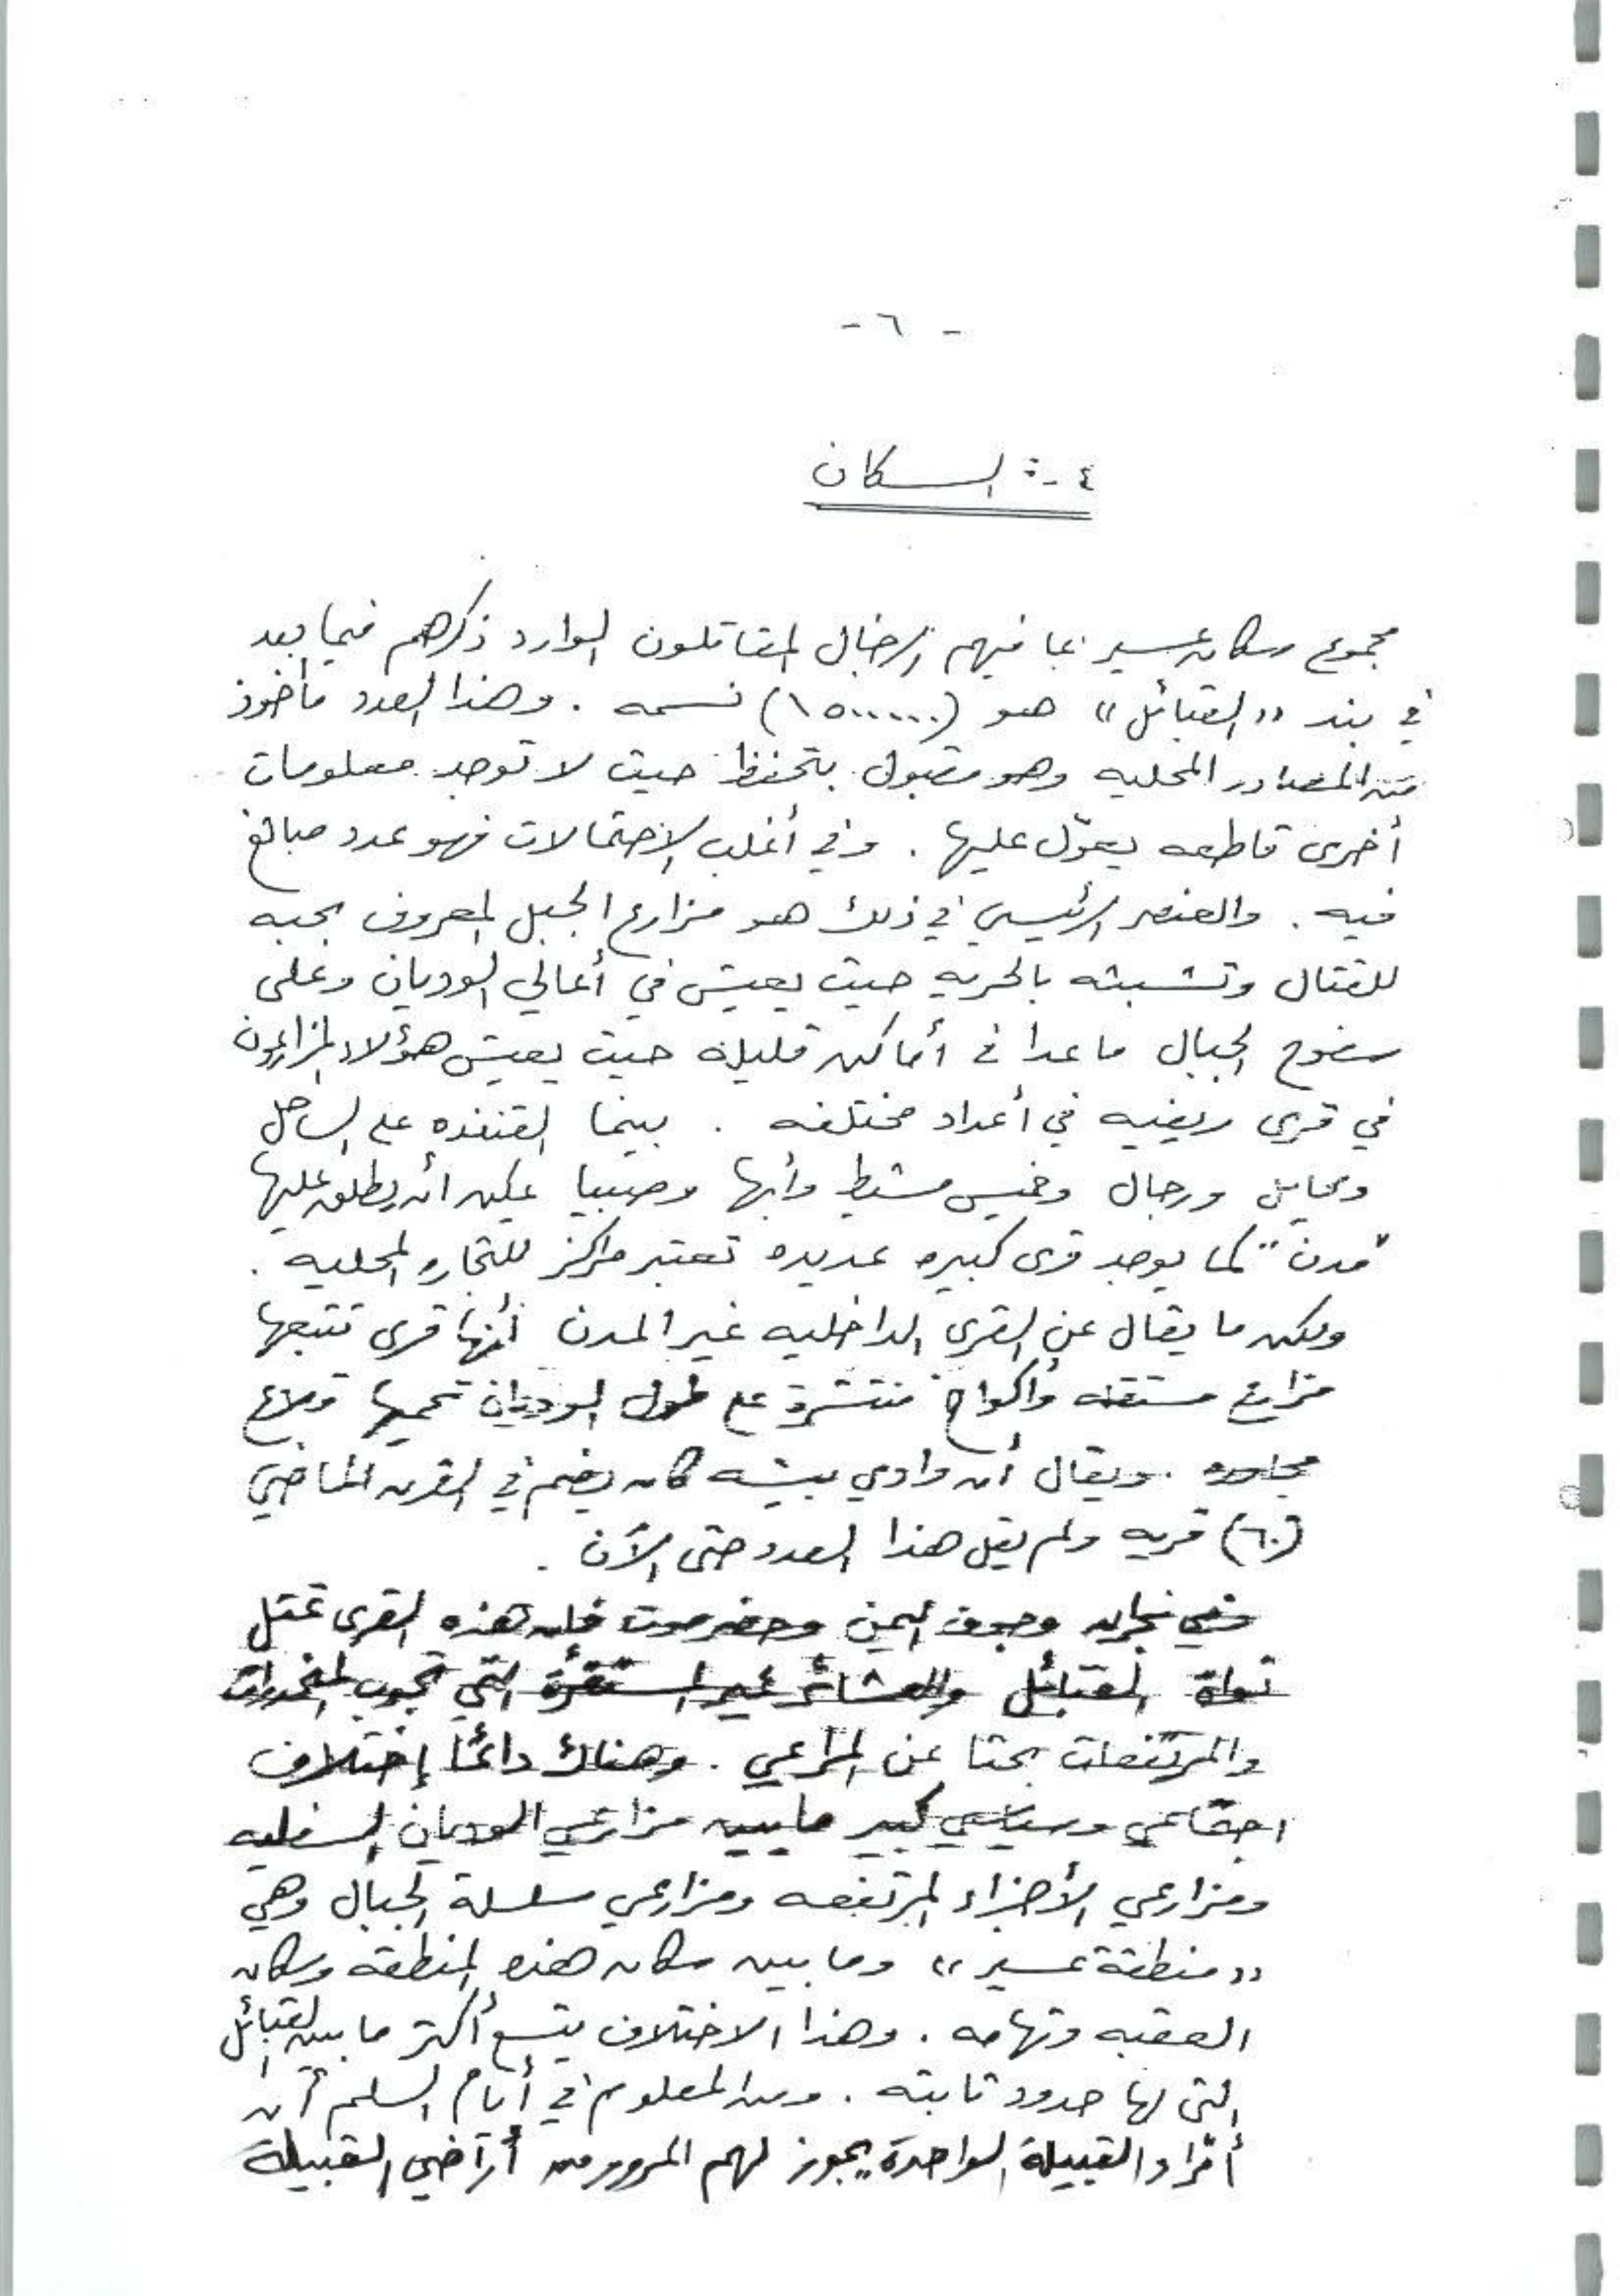 - ٦ -
٤ -: السكان
مجموع سكان عسير بما فيهم الرجال المقاتلون الوارد ذكرهم فيما بعد
في بند «القبائل» هو (١٥٠٠٠٠٠) نسمه . وهذا العدد مأخوذ
من المصادر المحليه وهو مقبول بتحفظ حيث لا توجد معلومات
أخرى قاطعه يعوّل عليها . وفي أغلب الاحتمالات فهو عدد مبالغ
فيه . والعنصر الرئيسي في ذلك هو مزارع الجبل المعروف بحبه
للقتال وتشبثه بالحريه حيث يعيش في أعالي الوديان وعلى
سفوح الجبال ماعدا في أماكن قليلة حيث يعيش هؤلاء المزارعون
في قرى ريفيه في أعداد مختلفه . بينما القنفذه على الساحل
ومحايل ورجال وخميس مشيط وأبها وصبيا يمكن أن يطلق عليها
"مدن" كما يوجد قرى كبيره عديده تعتبر مراكز للتجاره المحليه .
ولكن ما يقال عن القرى الداخليه غير المدن أنها قرى تتبعها
مزارع مستقله وأكواخ منتشرة على طول الوديان تحميها قلاع
مجاوره . ويقال أن وادي بيشه كان يضم في القرن الماضي
(٦٠) قريه ولم يقل هذا العدد حتى الآن .
وفي نجران وجوف اليمن وحضرموت فإن هذه القرى تمثل
نواة القبائل والعشائر غير المستقرة التي تجوب المنحدرات
والمرتفعات بحثا عن المراعي . وهناك دائمًا إختلاف
اجتماعي وسياسي كبير مابين مزارعي الوديان السفليه
ومزارعي الأجزاء المرتفعه ومزارعي سلسلة الجبال وهي
«منطقة عسير» وما بين سكان هذه المنطقه وسكان
العقبه وتهامه . وهذا الاختلاف يتسع أكثر ما بين القبائل
التي لها حدود ثابته . ومن المعلوم في أيام السلم أن
أفراد القبيلة الواحدة يجوز لهم المرور من أراضي القبيلة